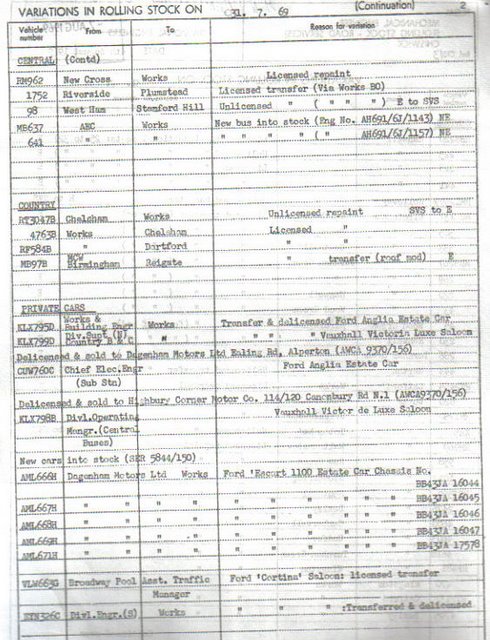 VARIATIONS IN ROLLING STOCK ON 31. 7. 69 (Continuation) 2
Vehicle number From To Reason for variation
CENTRAL (Contd)
RM962 New Cross Works Licensed repaint
1752 Riverside Plumstead Licensed transfer (Via Works BO)
98 West Ham Stamford Hill Unlicensed " ( " " ") E to SVS
MB637 AEC Works New bus into stock (Eng No. AH691/6J/1143) NE
641 " " " " " " ( " AH691/6J/1157) NE
COUNTRY
RT3047B Chelsham Works Unlicensed repaint SVS to E
4763B Works Chelsham Licensed "
RF584B " Dartford "
MB97B MCW Birmingham Reigate " transfer (roof mod) E
PRIVATE CARS
KLX795D Works & Building Engr Works Transfer & delicensed Ford Anglia Estate Car
KLX799D Div.Supt (N) Country B & C " " " " Vauxhall Victoria Luxe Saloon
Delicensed & sold to Dagenham Motors Ltd Ealing Rd, Alperton (AWCA 9370/156)
CUW760C Chief Elec.Engr (Sub Stn) Ford Anglia Estate Car
Delicensed & sold to Highbury Corner Motor Co. 114/120 Canonbury Rd N.1 (AWCA9370/156)
KLX798B Divl.Operating Vauxhall Victor de Luxe Saloon
Mangr.(Central
Buses)
New cars into stock (SER 5844/150)
AML666H Dagenham Motors Ltd Works Ford 'Escort 1100 Estate Car Chassis No.
BB43JA 16044
AML667H " " " " " " " BB43JA 16045
AML668H " " " " " " " BB43JA 16046
AML669H " " " " " " " BB43JA 16047
AML671H " " " " " " " BB43JA 17578
VLW663G Broadway Pool Asst. Traffic Manager Ford 'Cortina' Saloon: licensed transfer
326C Divl.Engr.(S) Works " " " :Transferred & delicensed